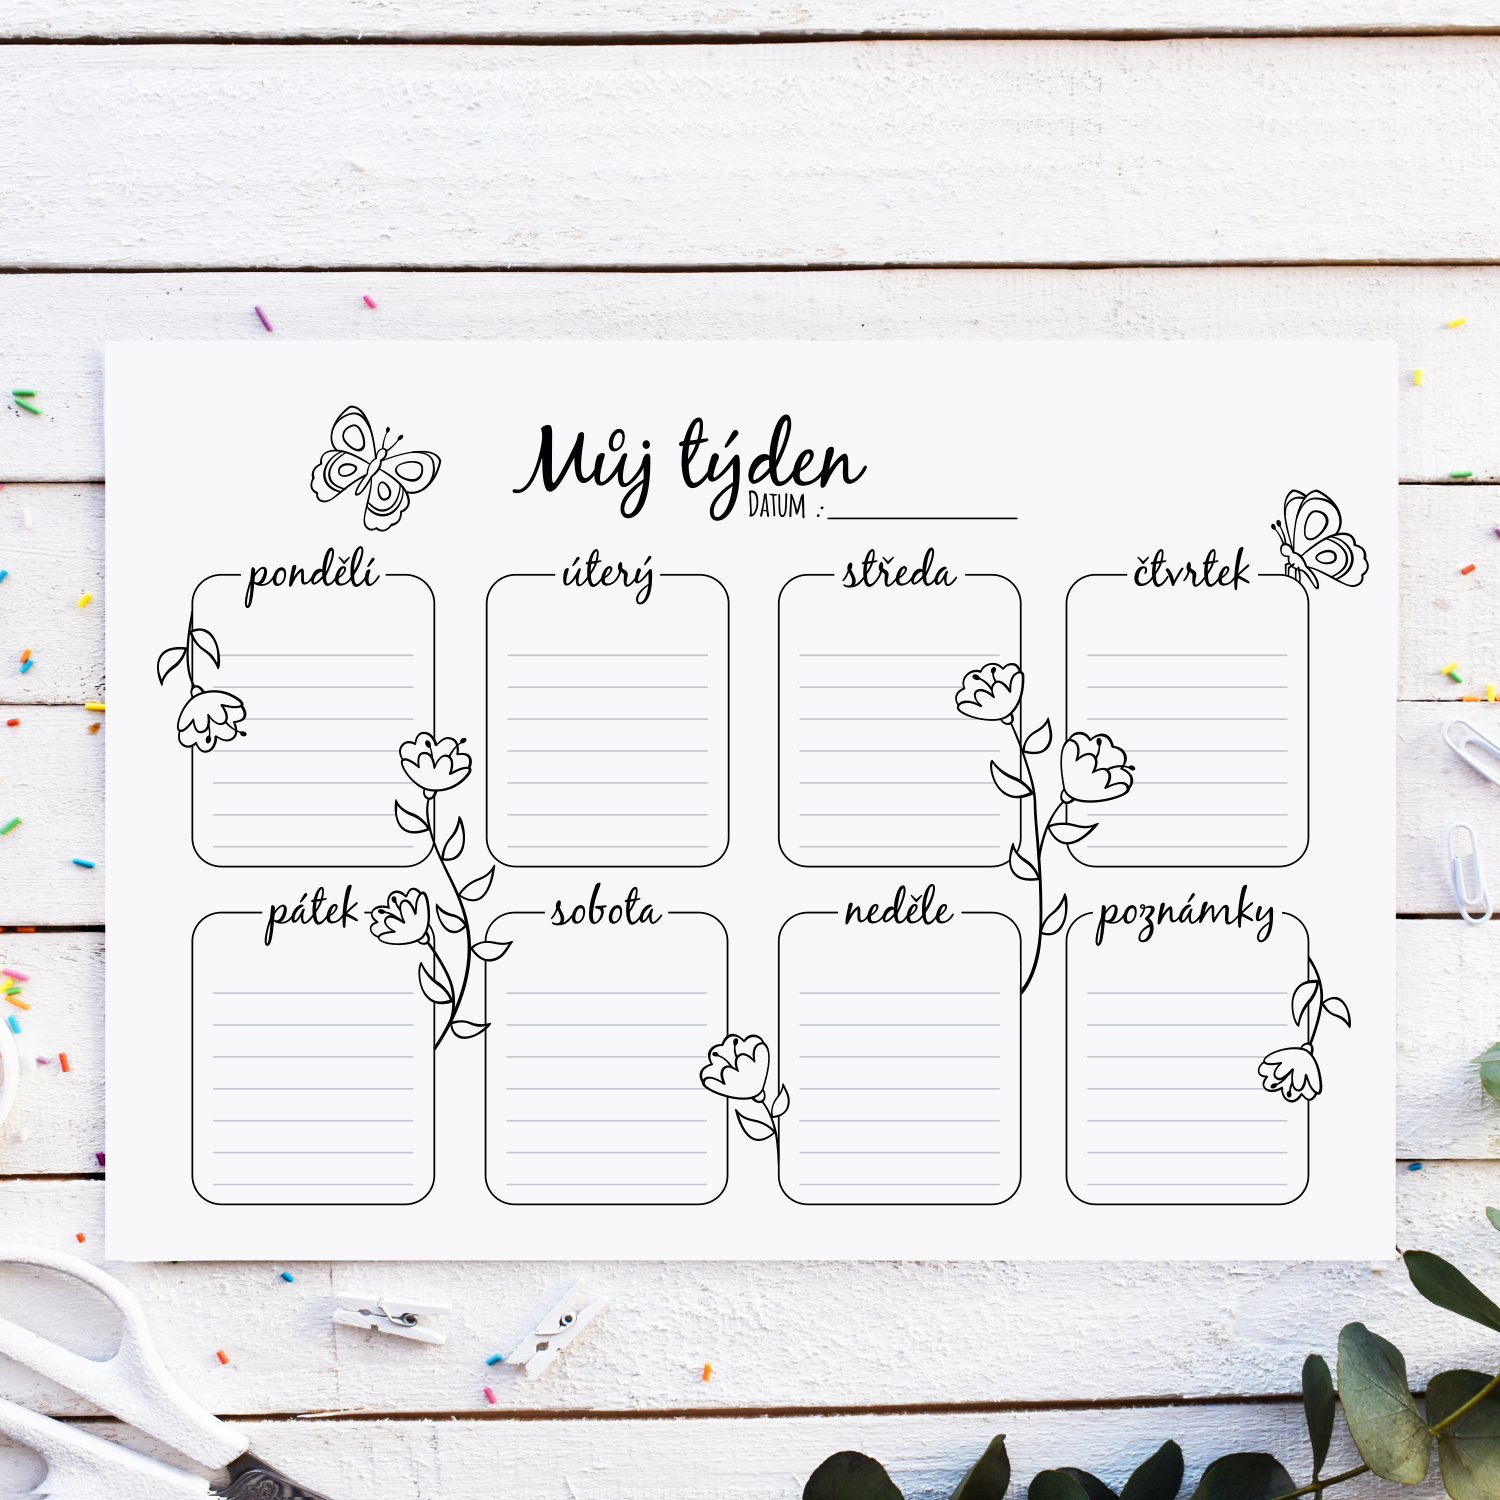 Můj týden
DATUM :
pondělí
úterý
středa
čtvrtek
pátek
sobota
neděle
poznámky